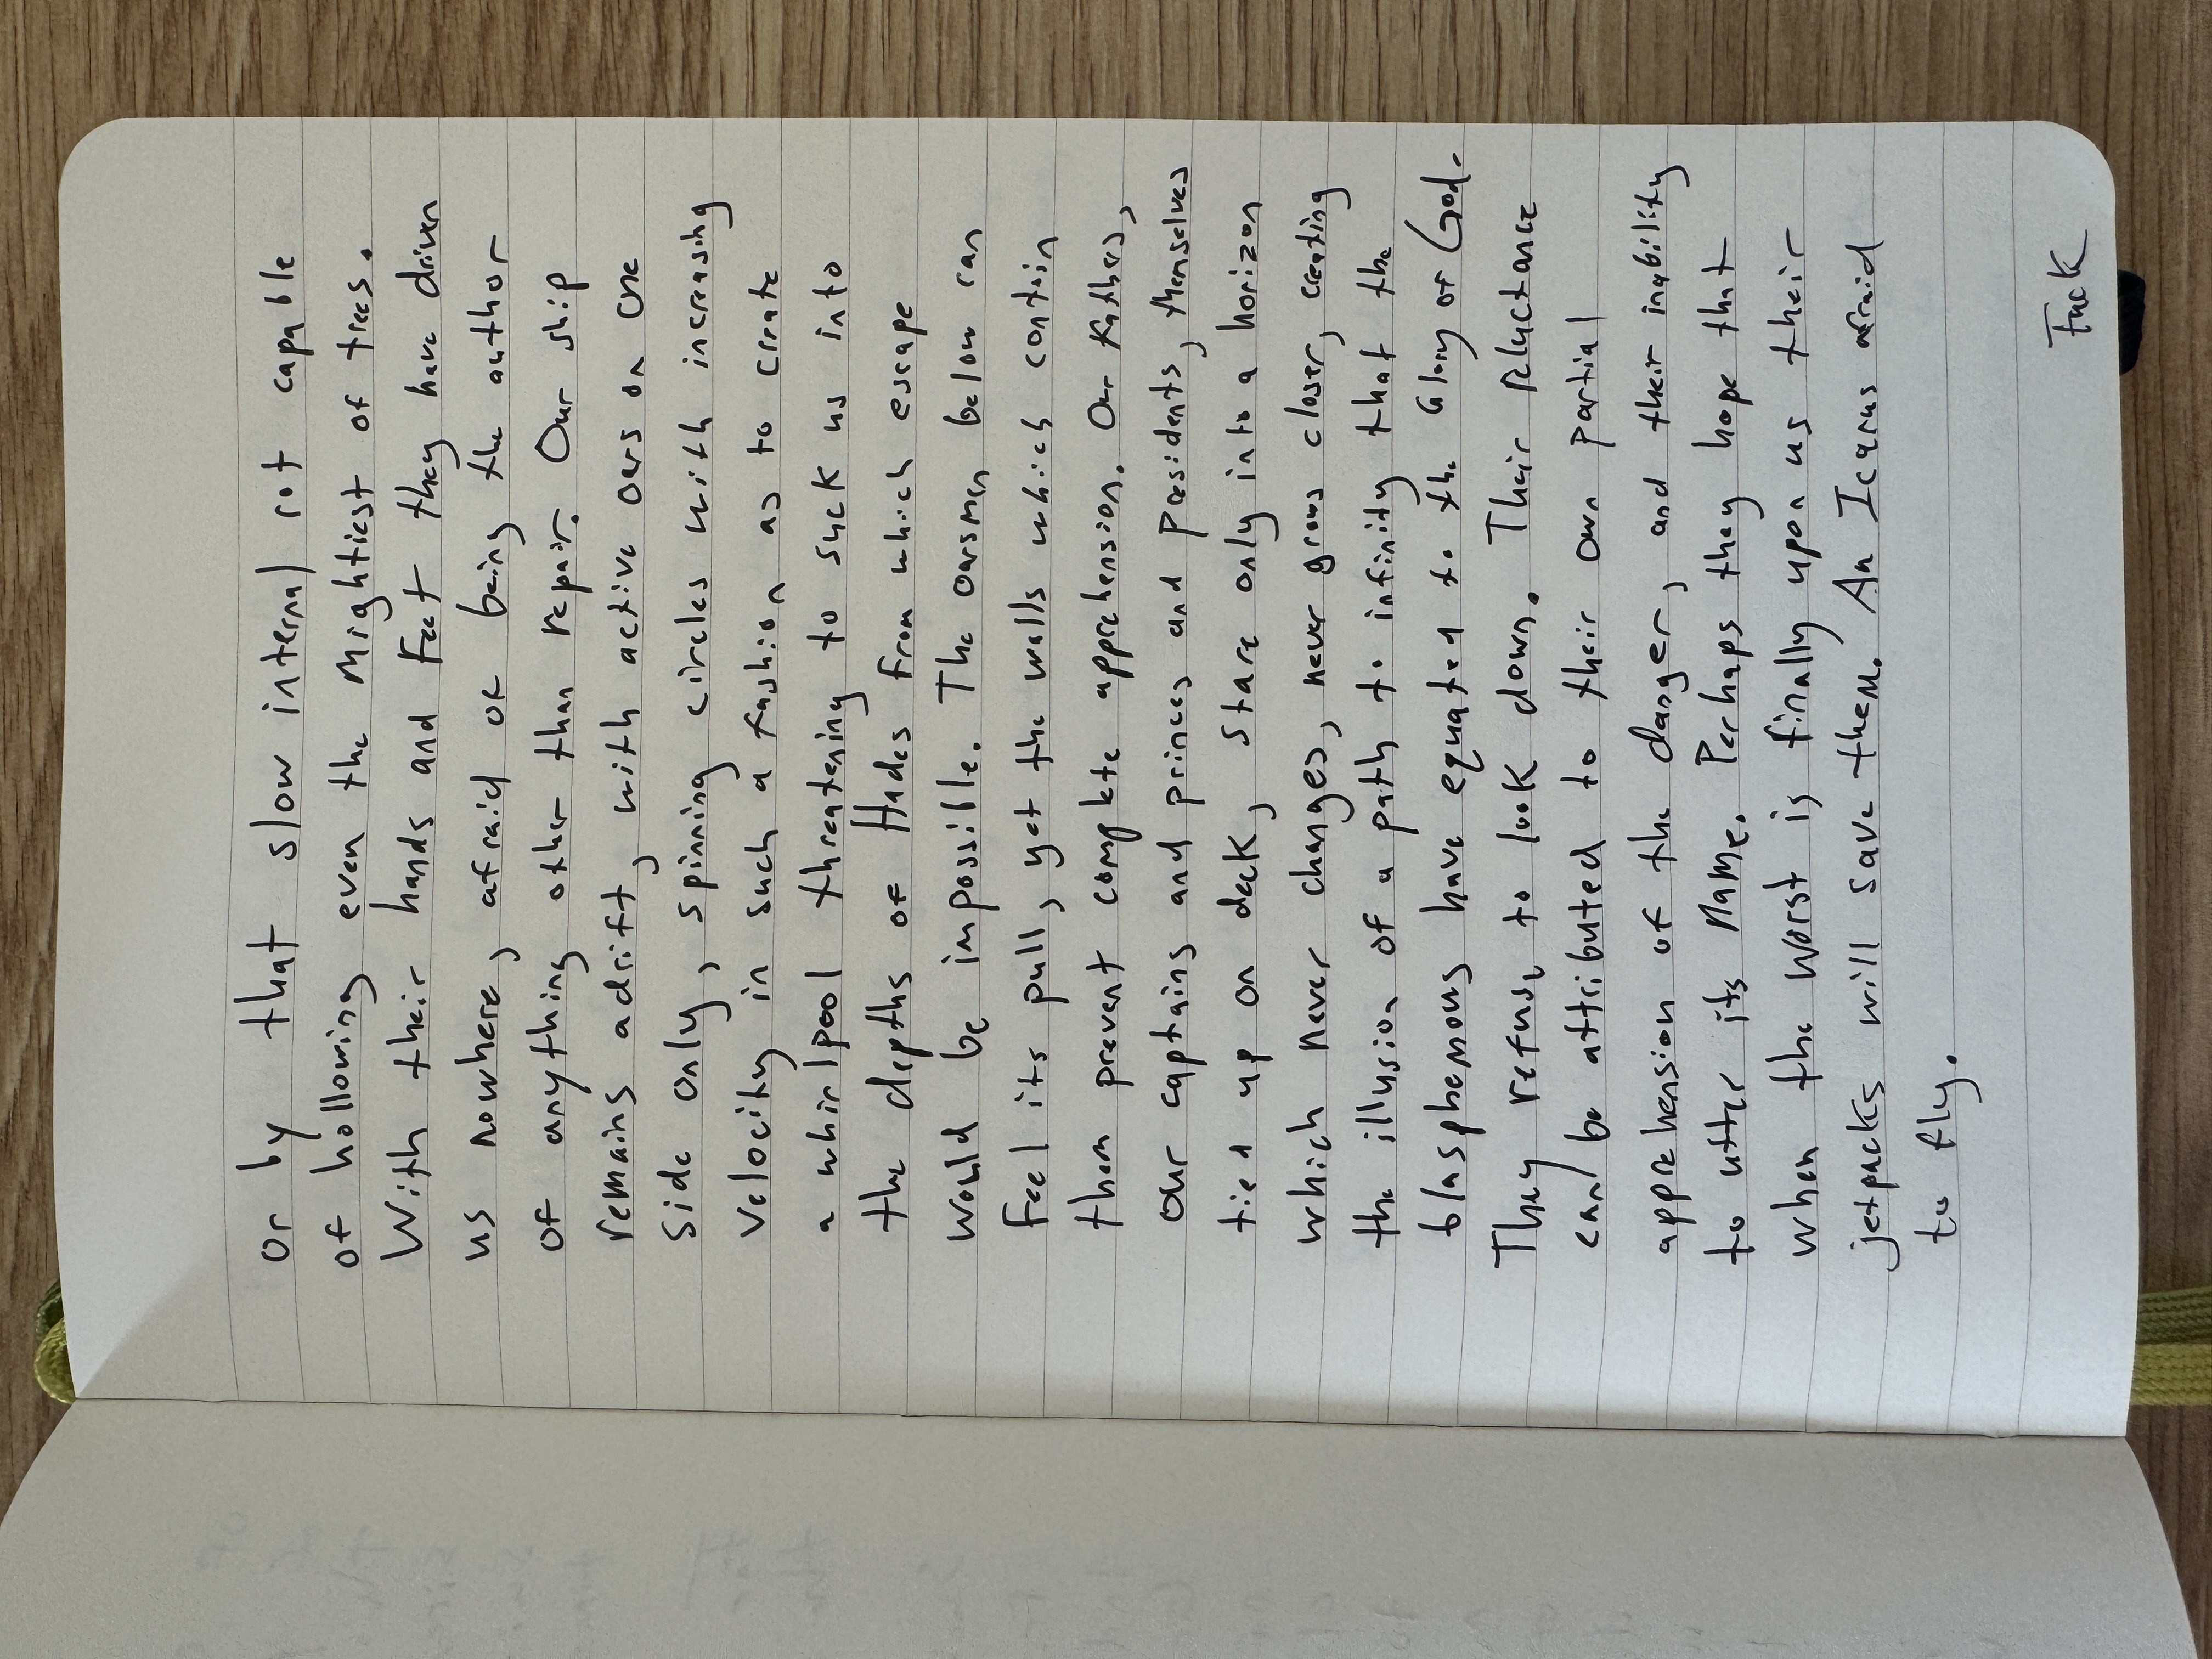 or by that slow internal rot capable
of hollowing even the mightiest of trees.
With their hands and feet they have driven
us nowhere, afraid of being the author
of anything other than repair. Our ship
remains adrift, with active oars on one
side only, spinning circles with increasing
velocity in such a fashion as to create
a whirlpool threatening to suck us into
the depths of Hades from which escape
would be impossible. The oarsmen below can
feel its pull, yet the walls which contain
them prevent complete apprehension. Our fathers,
our captains and princes and presidents, themselves
tied up on deck, stare only into a horizon
which never changes, never grows closer, creating
the illusion of a path to infinity that the
blasphemous have equated to the Glory of God.
They refuse to look down. Their reluctance
can be attributed to their own partial
apprehension of the danger, and their inability
to utter its name. Perhaps they hope that
when the worst is finally upon us their
jetpacks will save them. An Icarus afraid
to fly.